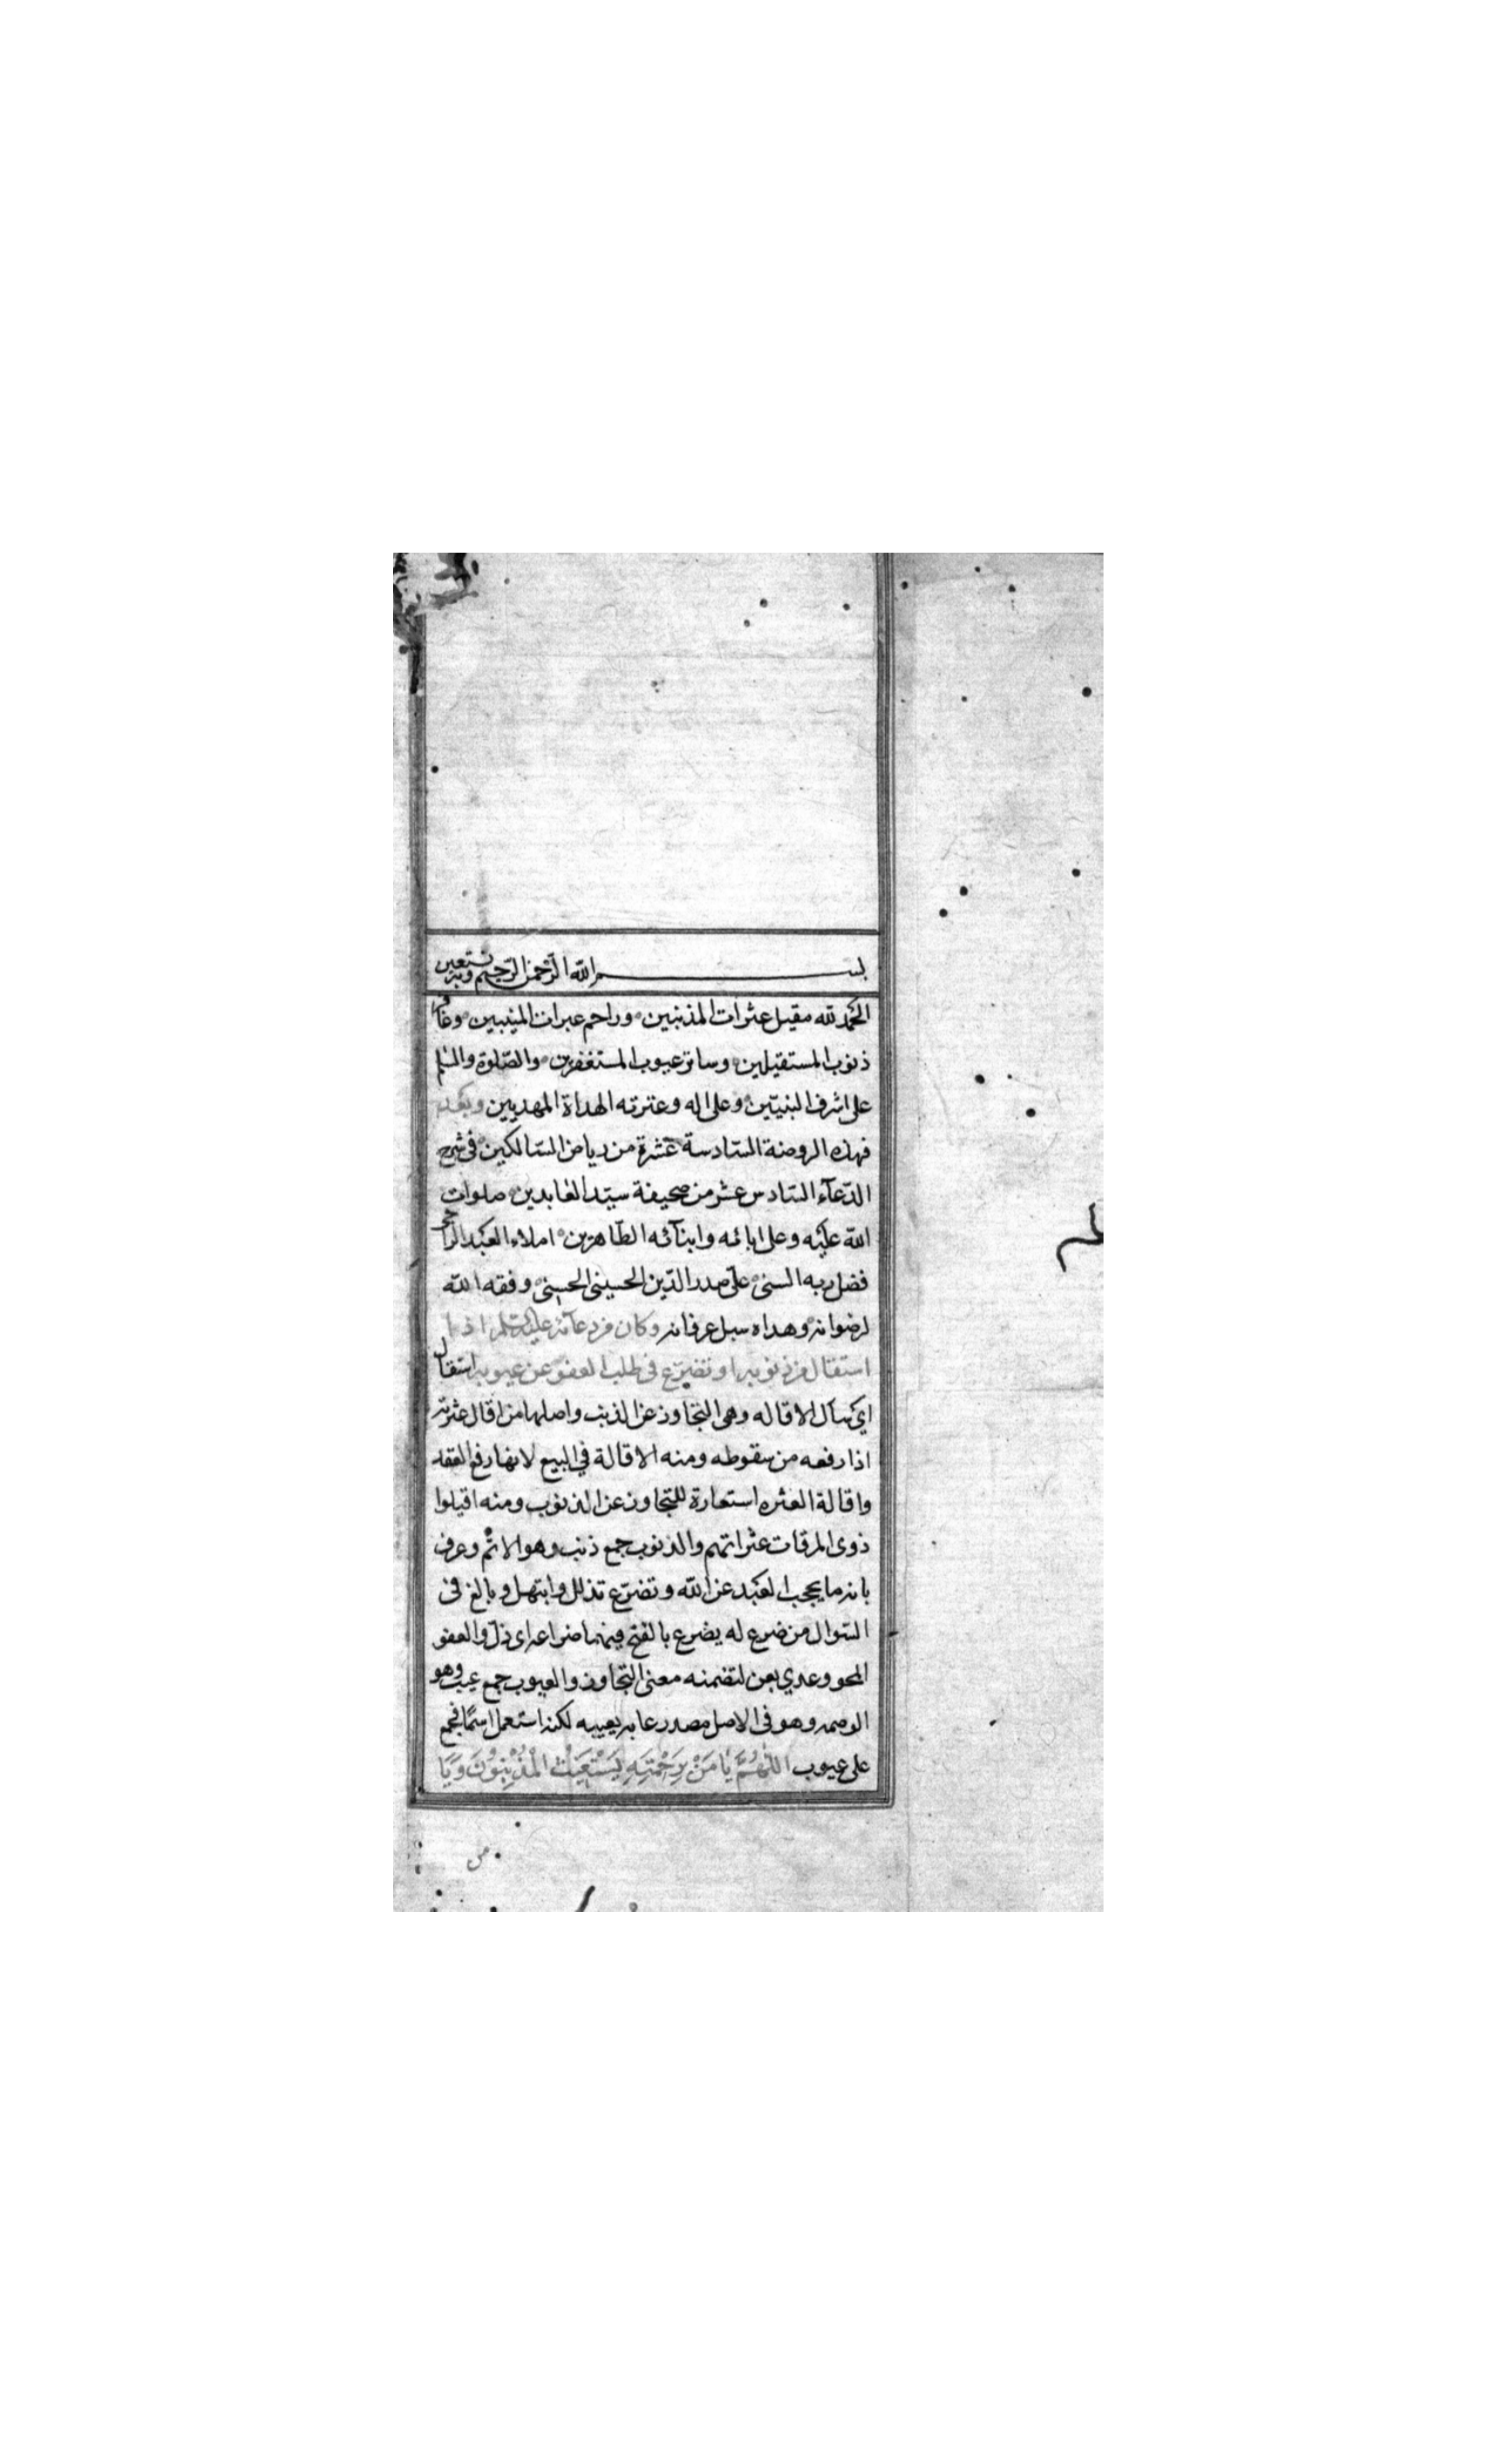 بسم الله الرحمن الرحيم وبه نستعين
الحمد لله مقيل عثرات المذنبين وراحم عبرات المنيبين وغافر
ذنوب المستقيلين وساتر عيوب المستغفرين والصّلوة والسّلم
على اشرف النبيّين وعلى اله وعترته الهداة المهديين وبعد
فهذه الروضة السّادسة عشرة من رياض السّالكين فى شرح
الدّعآء السّادس عشر من صحيفة سيّد العابدين صلوات
الله عليه وعلى ابائه وابنآئه الطّاهرين املاء العبد الراجى
فضل ربه السنى علىّ صدر الدّين الحسينى الحسنى وفقه الله
لرضوانه وهداه سبل عرفانه وكان من دعآئه عليه السّلم اذا
استقال من ذنوبه او تضرّع فى طلب العفو عن عيوبه استقال
اى سأل الاقاله وهى التجاوز عن الذنب واصلها من اقال عثرته
اذا رفعه من سقوطه ومنه الاقالة في البيع لانها رفع العقد
واقالة العثره استعارة للتجاوز عن الذنوب ومنه اقيلوا
ذوى المرؤات عثراتهم والذنوب جمع ذنب وهو الاثم وعرف
بانه ما يحجب العبد عن الله وتضرّع تذلل وابتهل وبالغ فى
السّوال من ضرع له يضرع بالفتح فيهما ضراعه اى ذلّ والعفو
المحو وعدي بعن لتضمنه معنى التجاوز والعيوب جمع عيب وهو
الوصمه وهو فى الاصل مصدر عابه يعيبه لكنه استعمل اسمًا فجمع
على عيوب اللّهُمَّ يٰا مَنْ بِرَحْمَتِهِ يَسْتَغيثُ الْمُذْنِبُونَ وَيَا
من